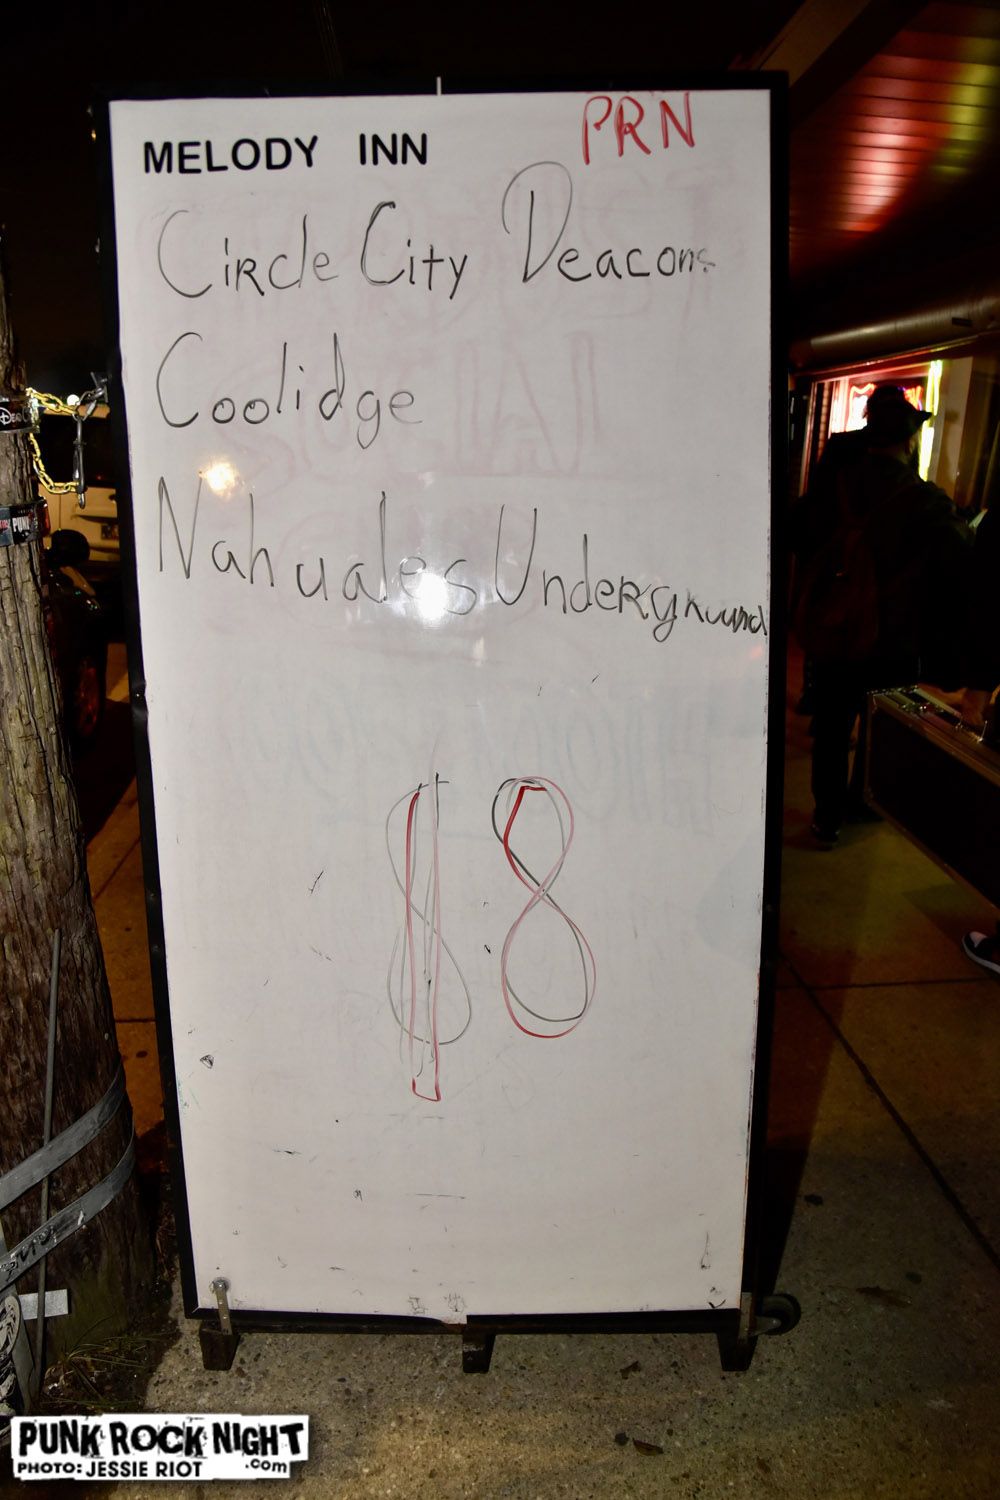 MELODY INN
PRN
Circle City Deacons
Coolidge
Nahuales Underground
$8
PUNK ROCK NIGHT
.com
PHOTO: JESSIE RIOT